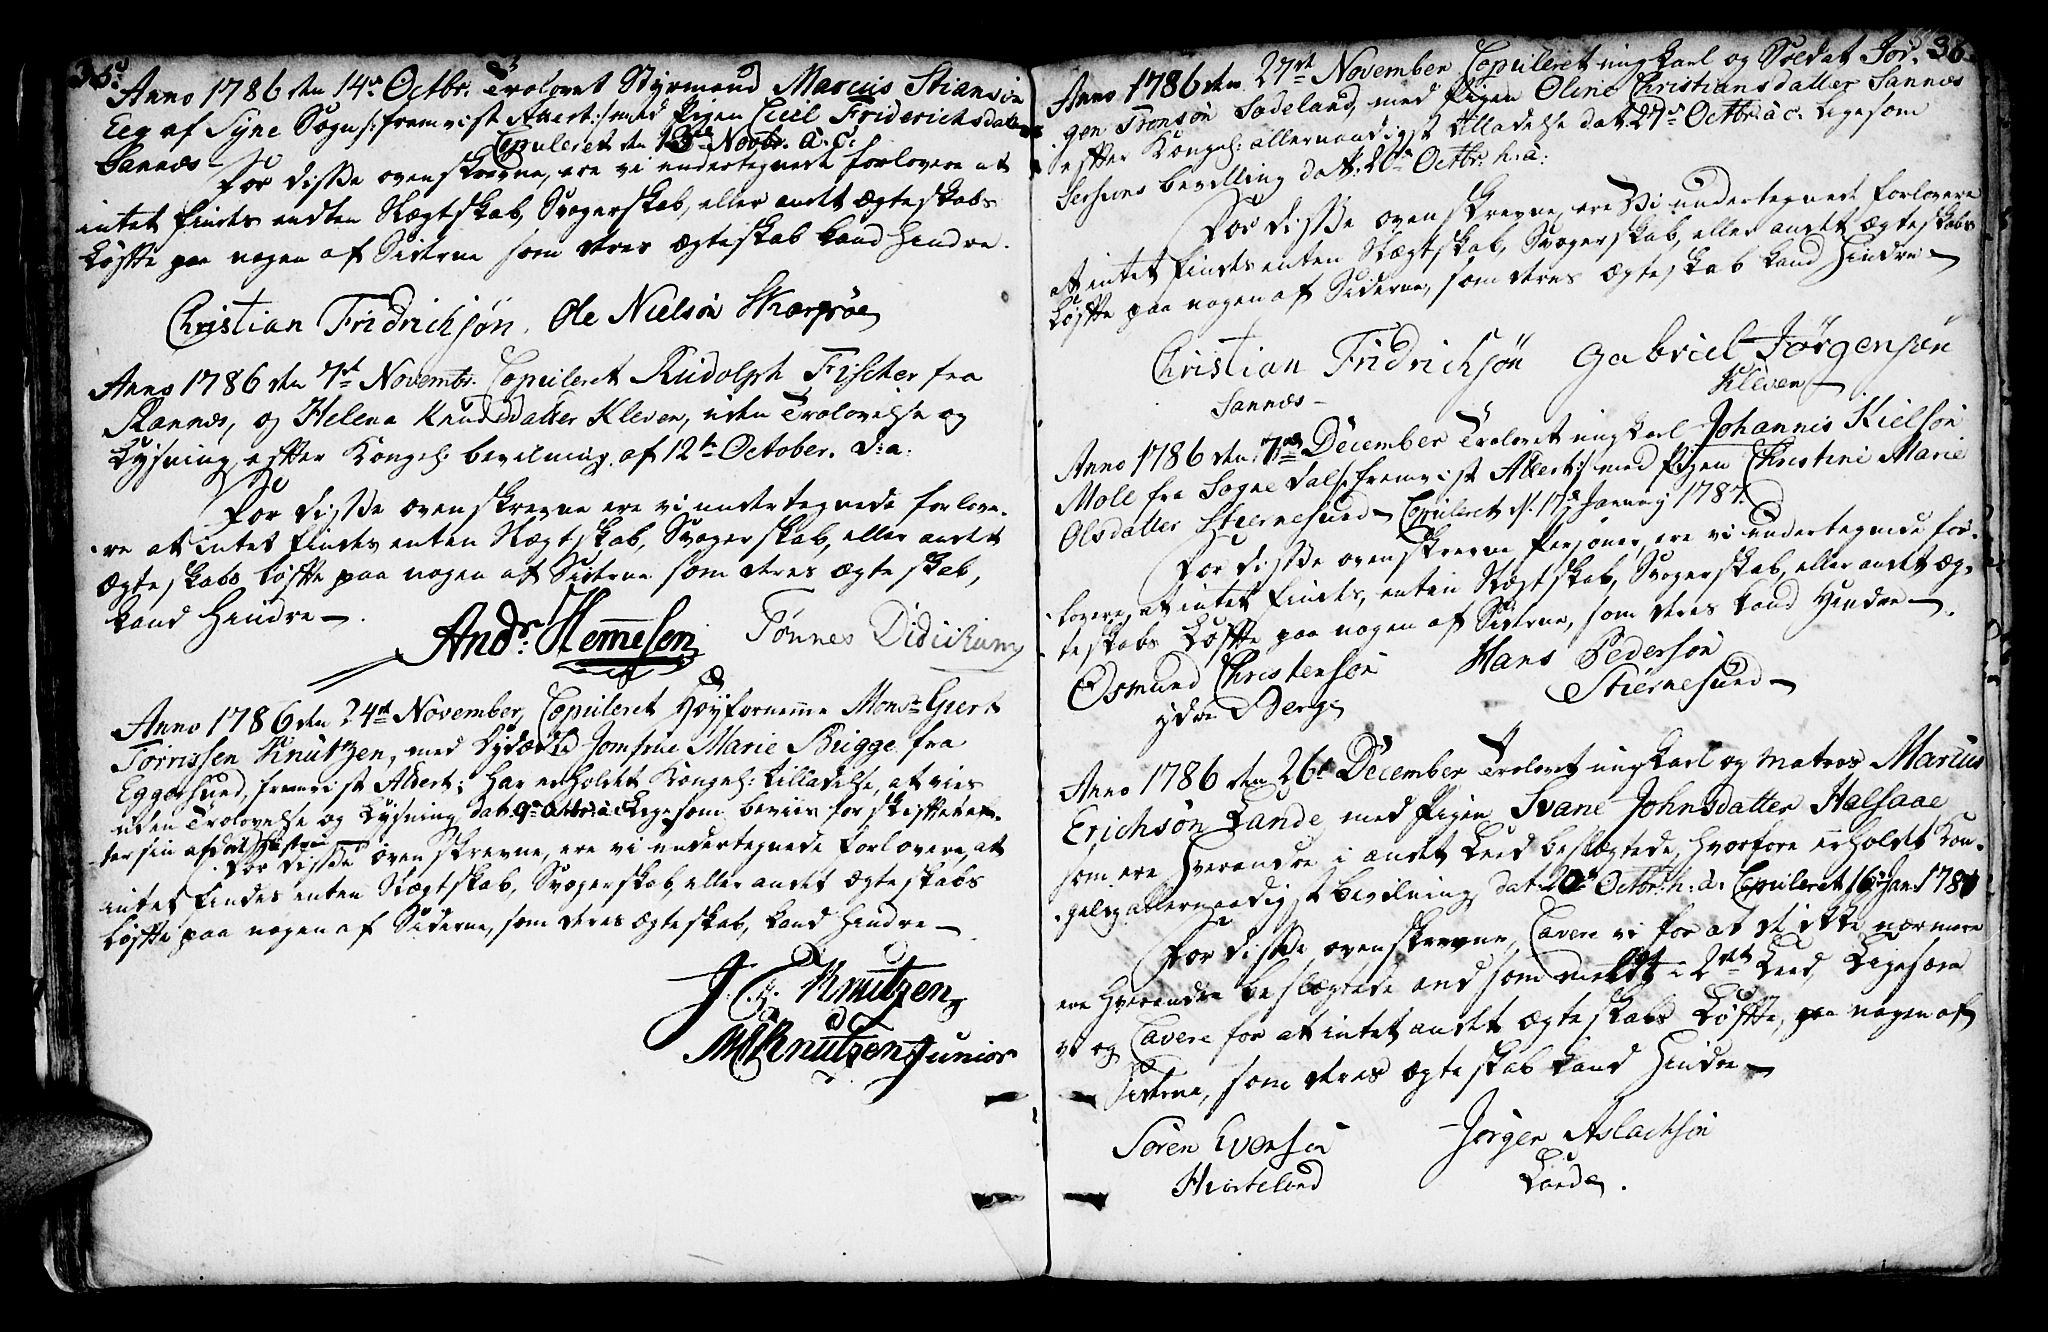 35.
Anno 1786 den 14de Octbr. Trolovet Styrmand Marcus Stiansøn
Eeg af Syne Sogn /: fremvist Attest :/ med Pigen Cicil Friderichsdatter
Sannes Copuleret den 13de Novbr. a. c.
For disse ovenskrevne, ere vi undertegnede forlovere at
intet findes endten Slægtskab, Svogerskab, eller andet Ægteskabs
Løffte paa nogen af Siderne som deres Ægteskab kand hindre.
Christian Fridrichsøn. Ole Nielsøn Skarpøe
Anno 1786 den 7de Novembr. Copuleret Rudolph Fischer fra
Rannes, og Helena Knudsdatter Kleven, uden Trolovelse og
Lysning efter Kongel. bevilning af 12te October. d: a:
For disse ovenskrevne ere vi undertegnede forlove-
re at intet findes enten Slægtskab, Svogerskab, eller andet
Ægteskabs Løffte paa nogen af Siderne som deres Ægteskab,
kand hindre.
Andr. Hemesen Tønnes Didichsen
Anno 1786 den 24de November, Copuleret Høyfornemme Monsr. Giert
Torrissen Knutzen, med Dydædle Jomfrue Marie Brigge fra
Eggersund, fremvist Attest; har erholdet Kongel: Tilladelse, at vies
uden Trolovelse og Lysning dat. 9de Octbr. a. c. Ligesom beviis for skifte ef-
ter sin afdøde Hustrue
For disse ovenskrevne, ere vi undertegnede forlovere, at
intet findes enten Slægtskab, Svogerskab, eller andet Ægteskabs
Løffte paa nogen af Siderne, som deres Ægteskab, kand hindre
J. C. Knutzen
Knutzen Junior
36.
Anno 1786 den 27de November Copuleret ungkarl og Soldat Jør-
gen Tronsøn Sodeland, med Pigen Oline Christiansdatter Sannes
efter Kongel: allernaadigst Tilladelse dat. 27de Octbr. a. c. Ligesom
bevilling dat. 26de Octbr. h. a:
For disse ovenskrevne, ere Vi undertegnede forlovere
at intet findes enten Slægtskab, Svogerskab, eller andet Ægteskabs
Løffte paa nogen af Siderne, som deres Ægteskab kand hindre
Christian Fridrichsøn Gabriel Jørgensøn
Sannes Kleven
Anno 1786 den 7de December Trolovet ungkarl Johannis Kielsøn
Moll fra Sogne dal /: fremvist Attest :/ med Pigen Christine Marie
Olsdatter Stiernesund Copuleret d. 17de Januarj 1787.
For disse ovenskrevne Persjoner, ere vi undertegnede for-
lovere, at intet findes, enten Slægtskab, Svogerskab, eller andet Æg-
teskabs Løffte paa nogen af Siderne, som deres kand hindre
Osmund Christensøn Hans Pedersøn
ydre Berge Stiernesund
Anno 1786 den 26de December Trolovet ungkarl og Matros Marcus
Erichsøn Lande, med Pigen Svane Johnsdatter Halsaae
som ere hverandre i andet Leed beslægtede, hvorfore erholdet Kon-
gelig allernaadigst bevilning dat. 20de Octbr. h. a. Copuleret 16de Jan. 1787
For disse ovenskrevne, Cavere vi for at de ikke nærmere
ere hverandre beslægtede end som meldt i 2det Leed, Ligesom
vi og Cavere for at intet andet Ægteskabs Løffte, paa nogen af
Siderne, som deres Ægteskab kand hindre
Søren Evensøn Jørgen Aslachsøn
Hiorteland Lande.